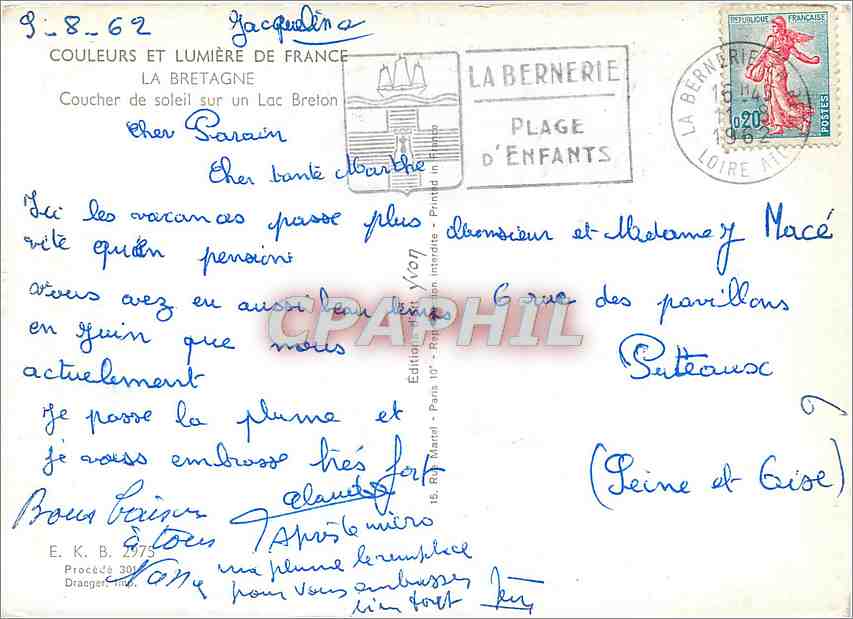 9-8-62 Jacqueline
COULEURS ET LUMIÈRE DE FRANCE
LA BRETAGNE
Coucher de soleil sur un Lac Breton
Cher Parain
Cher tante Marthe
Ici les vacances passe plus
vite qu'en pension
vous avez eu aussi beau temps
en Juin que nous
actuelement
Je passe la plume et
je vous embrasse très fort
Claude
Bons baisers
à tous
Après le micro
ma plume le remplace
pour vous embrasser
bien fort
E. K. B. 2975
Procédé 301
Draeger, imp.
Éditions d'art YVON
15, Rue Martel - Paris 10e - Reproduction interdite - Printed in France
LA BERNERIE
PLAGE
D'ENFANTS
LA BERNERIE
16 H 45
1962
LOIRE ATL
RÉPUBLIQUE FRANÇAISE
0,20
POSTES
Monsieur et Madame J Macé
6 rue des pavillons
Puteaux
(Seine et Oise)
CPAPHIL